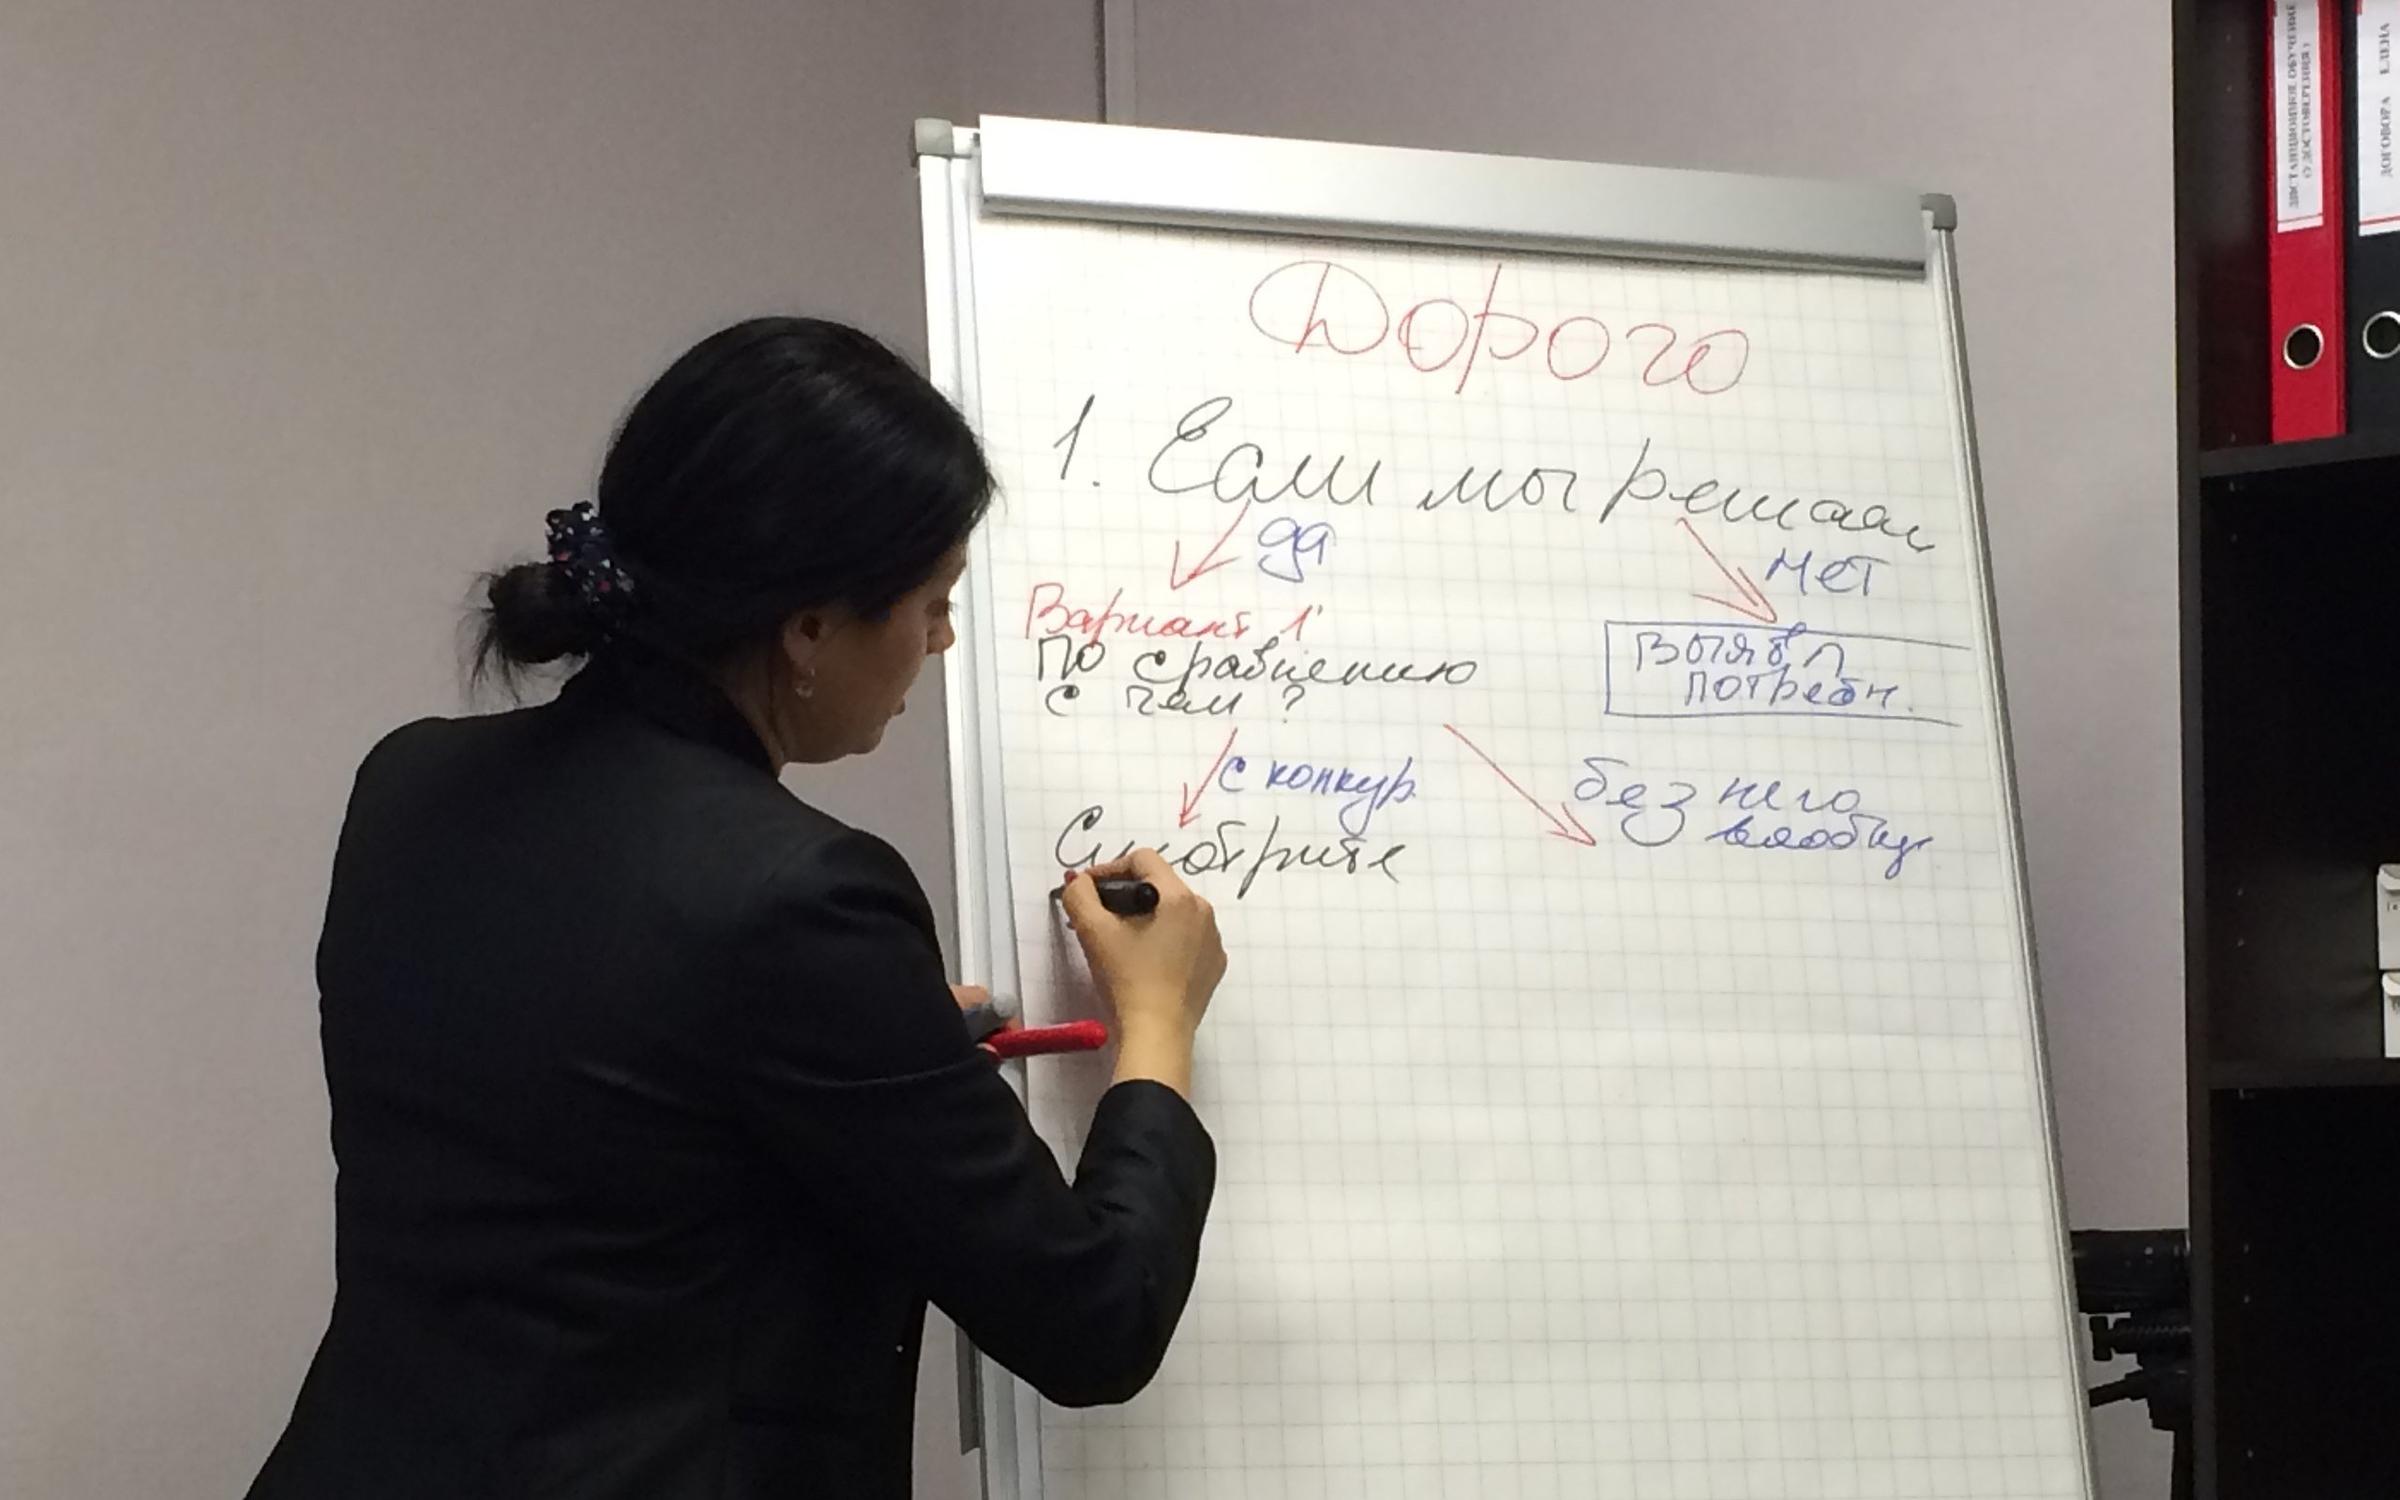 Дорого
1. Если мы решаем
да
нет
Вариант 1
По сравнению
с чем?
Выявл
потребн.
с конкур.
без него
вообще
Смотрите
ДИСТАНЦИОННОЕ ОБУЧЕНИЕ
(УДОСТОВЕРЕНИЯ)
ДОГОВОРА ЕЛЕНА